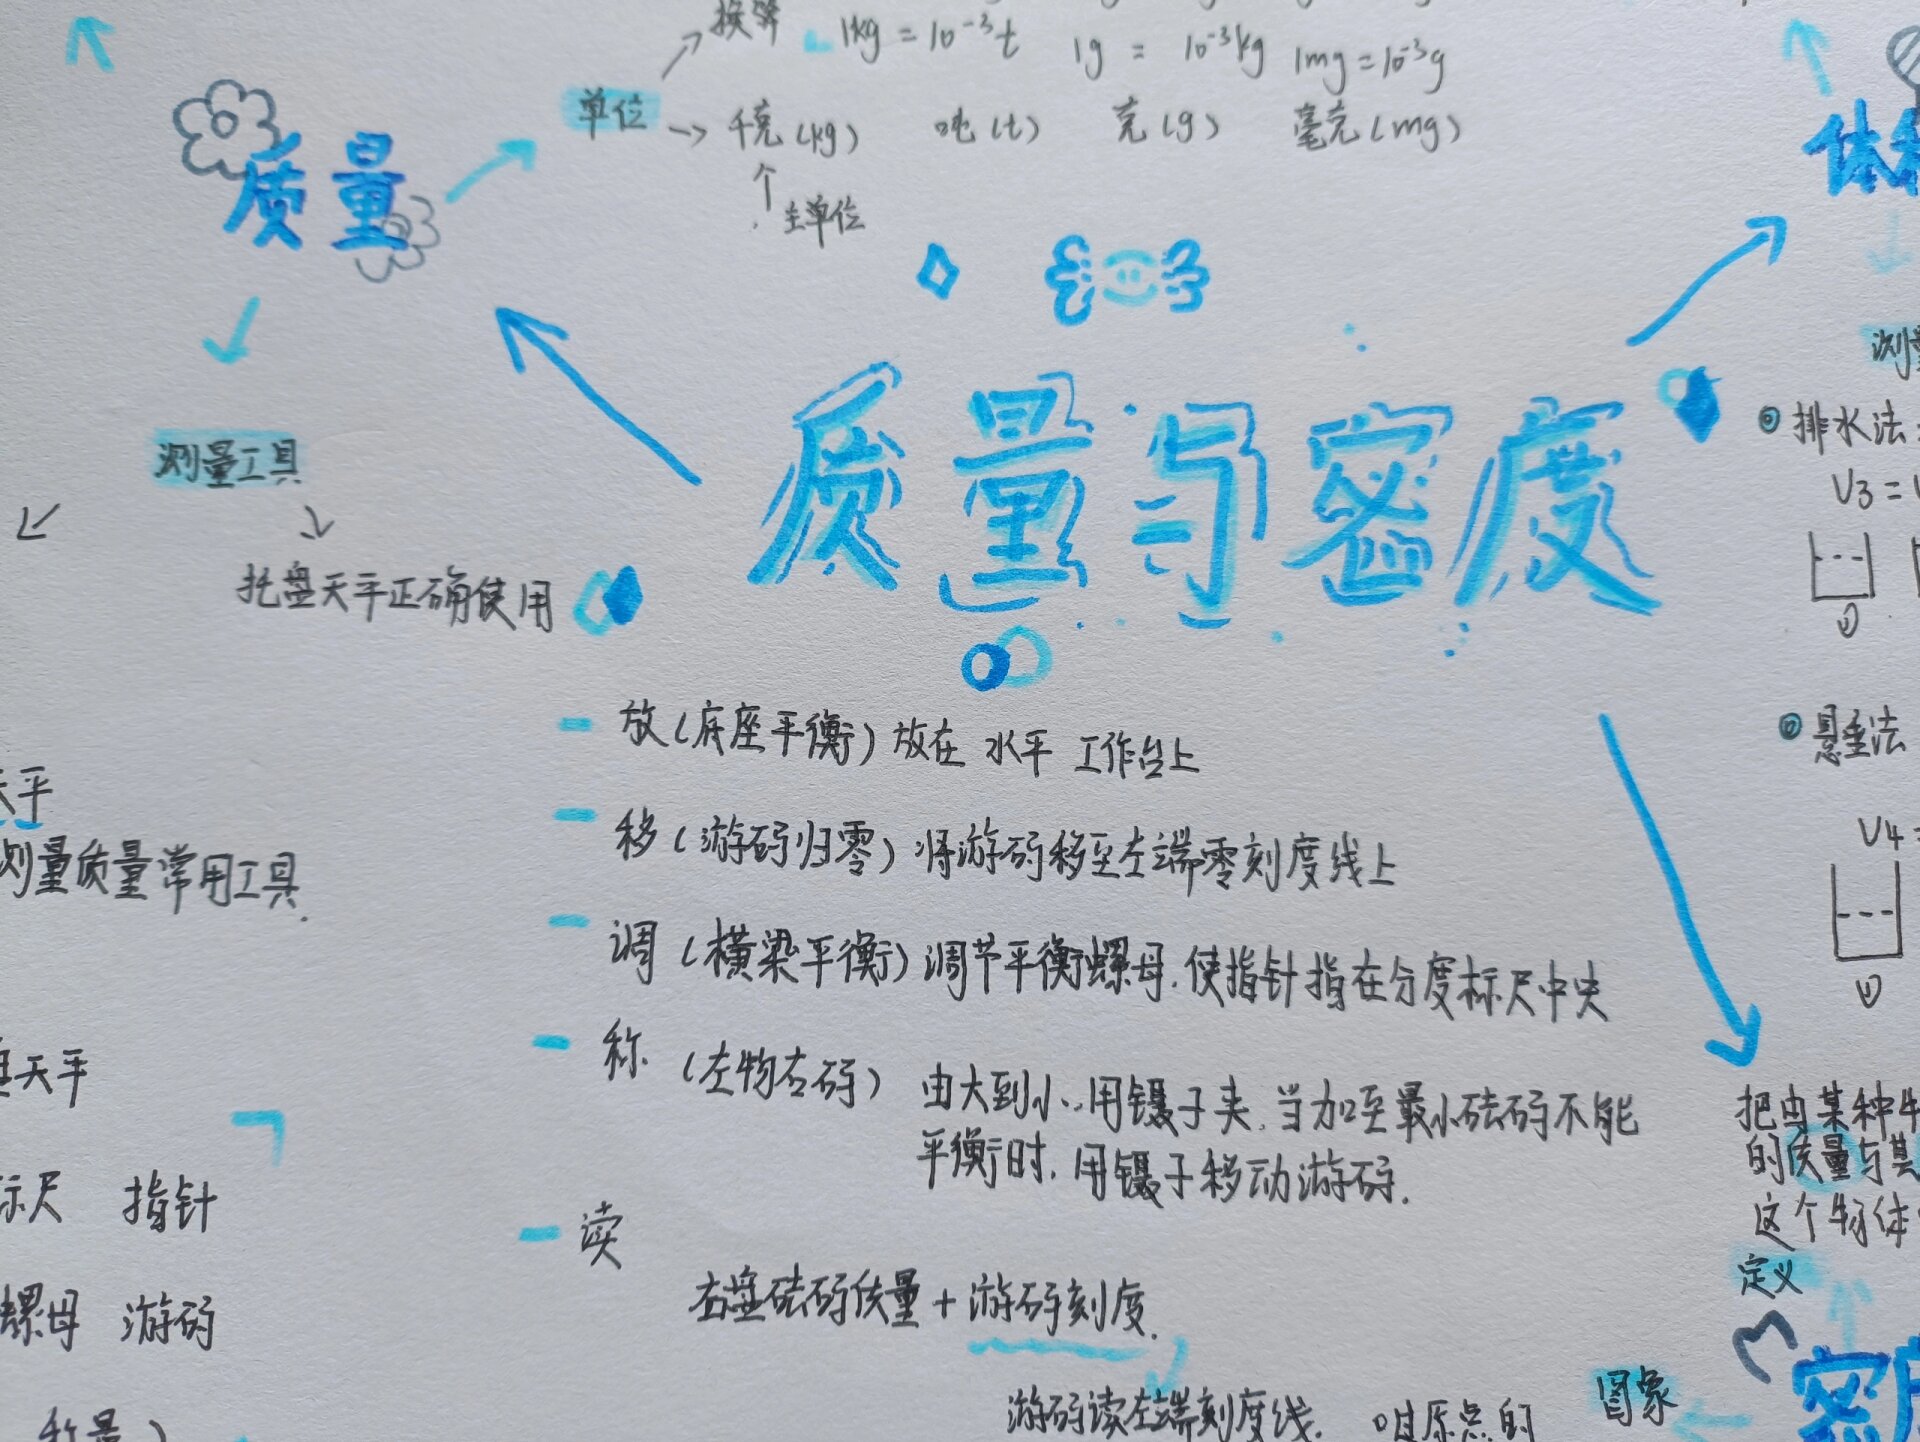 换算 1kg = 10⁻³t 1g = 10⁻³kg 1mg = 10⁻³g
单位
千克(kg) 吨(t) 克(g) 毫克(mg)
主单位
质量
体积
质量与密度
测量工具
托盘天平正确使用
排水法
V3 =
①
放(底座平衡)放在 水平 工作台上
移(游码归零)将游码移至左端零刻度线上
调(横梁平衡)调节平衡螺母,使指针指在分度标尺中央
称(左物右码) 由大到小,用镊子夹,当加至最小砝码不能
平衡时,用镊子移动游码.
读
右盘砝码质量 + 游码刻度.
游码读左端刻度线.
天平
测量质量常用工具.
天平
标尺 指针
螺母 游码
悬垂法
V4 =
①
把由某种
的质量与其
这个物体
定义
图象
密度